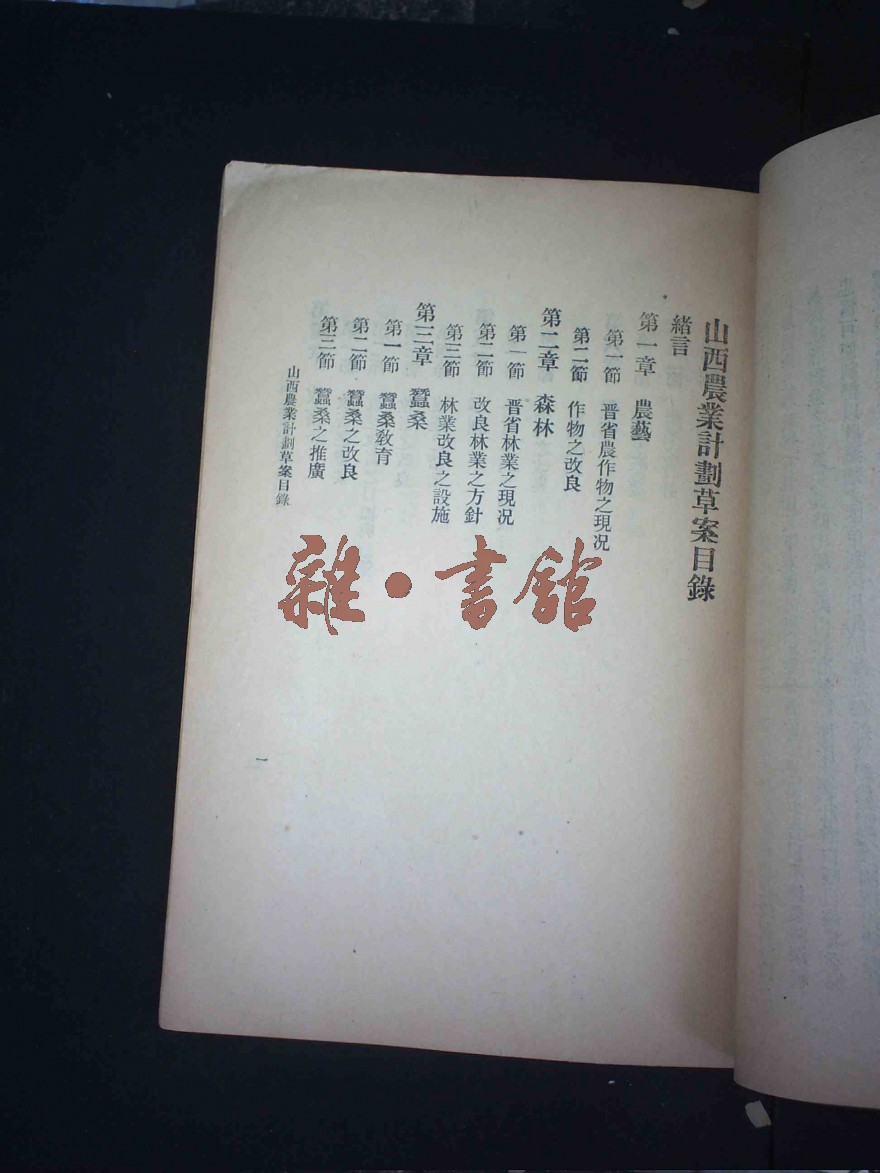 山西農業計劃草案目錄
緒言
第一章 農藝
第一節 晋省農作物之現况
第二節 作物之改良
第二章 森林
第一節 晋省林業之現况
第二節 改良林業之方針
第三節 林業改良之設施
第三章 蠶桑
第一節 蠶桑教育
第二節 蠶桑之改良
第三節 蠶桑之推廣
山西農業計劃草案目錄
一
雜·書館